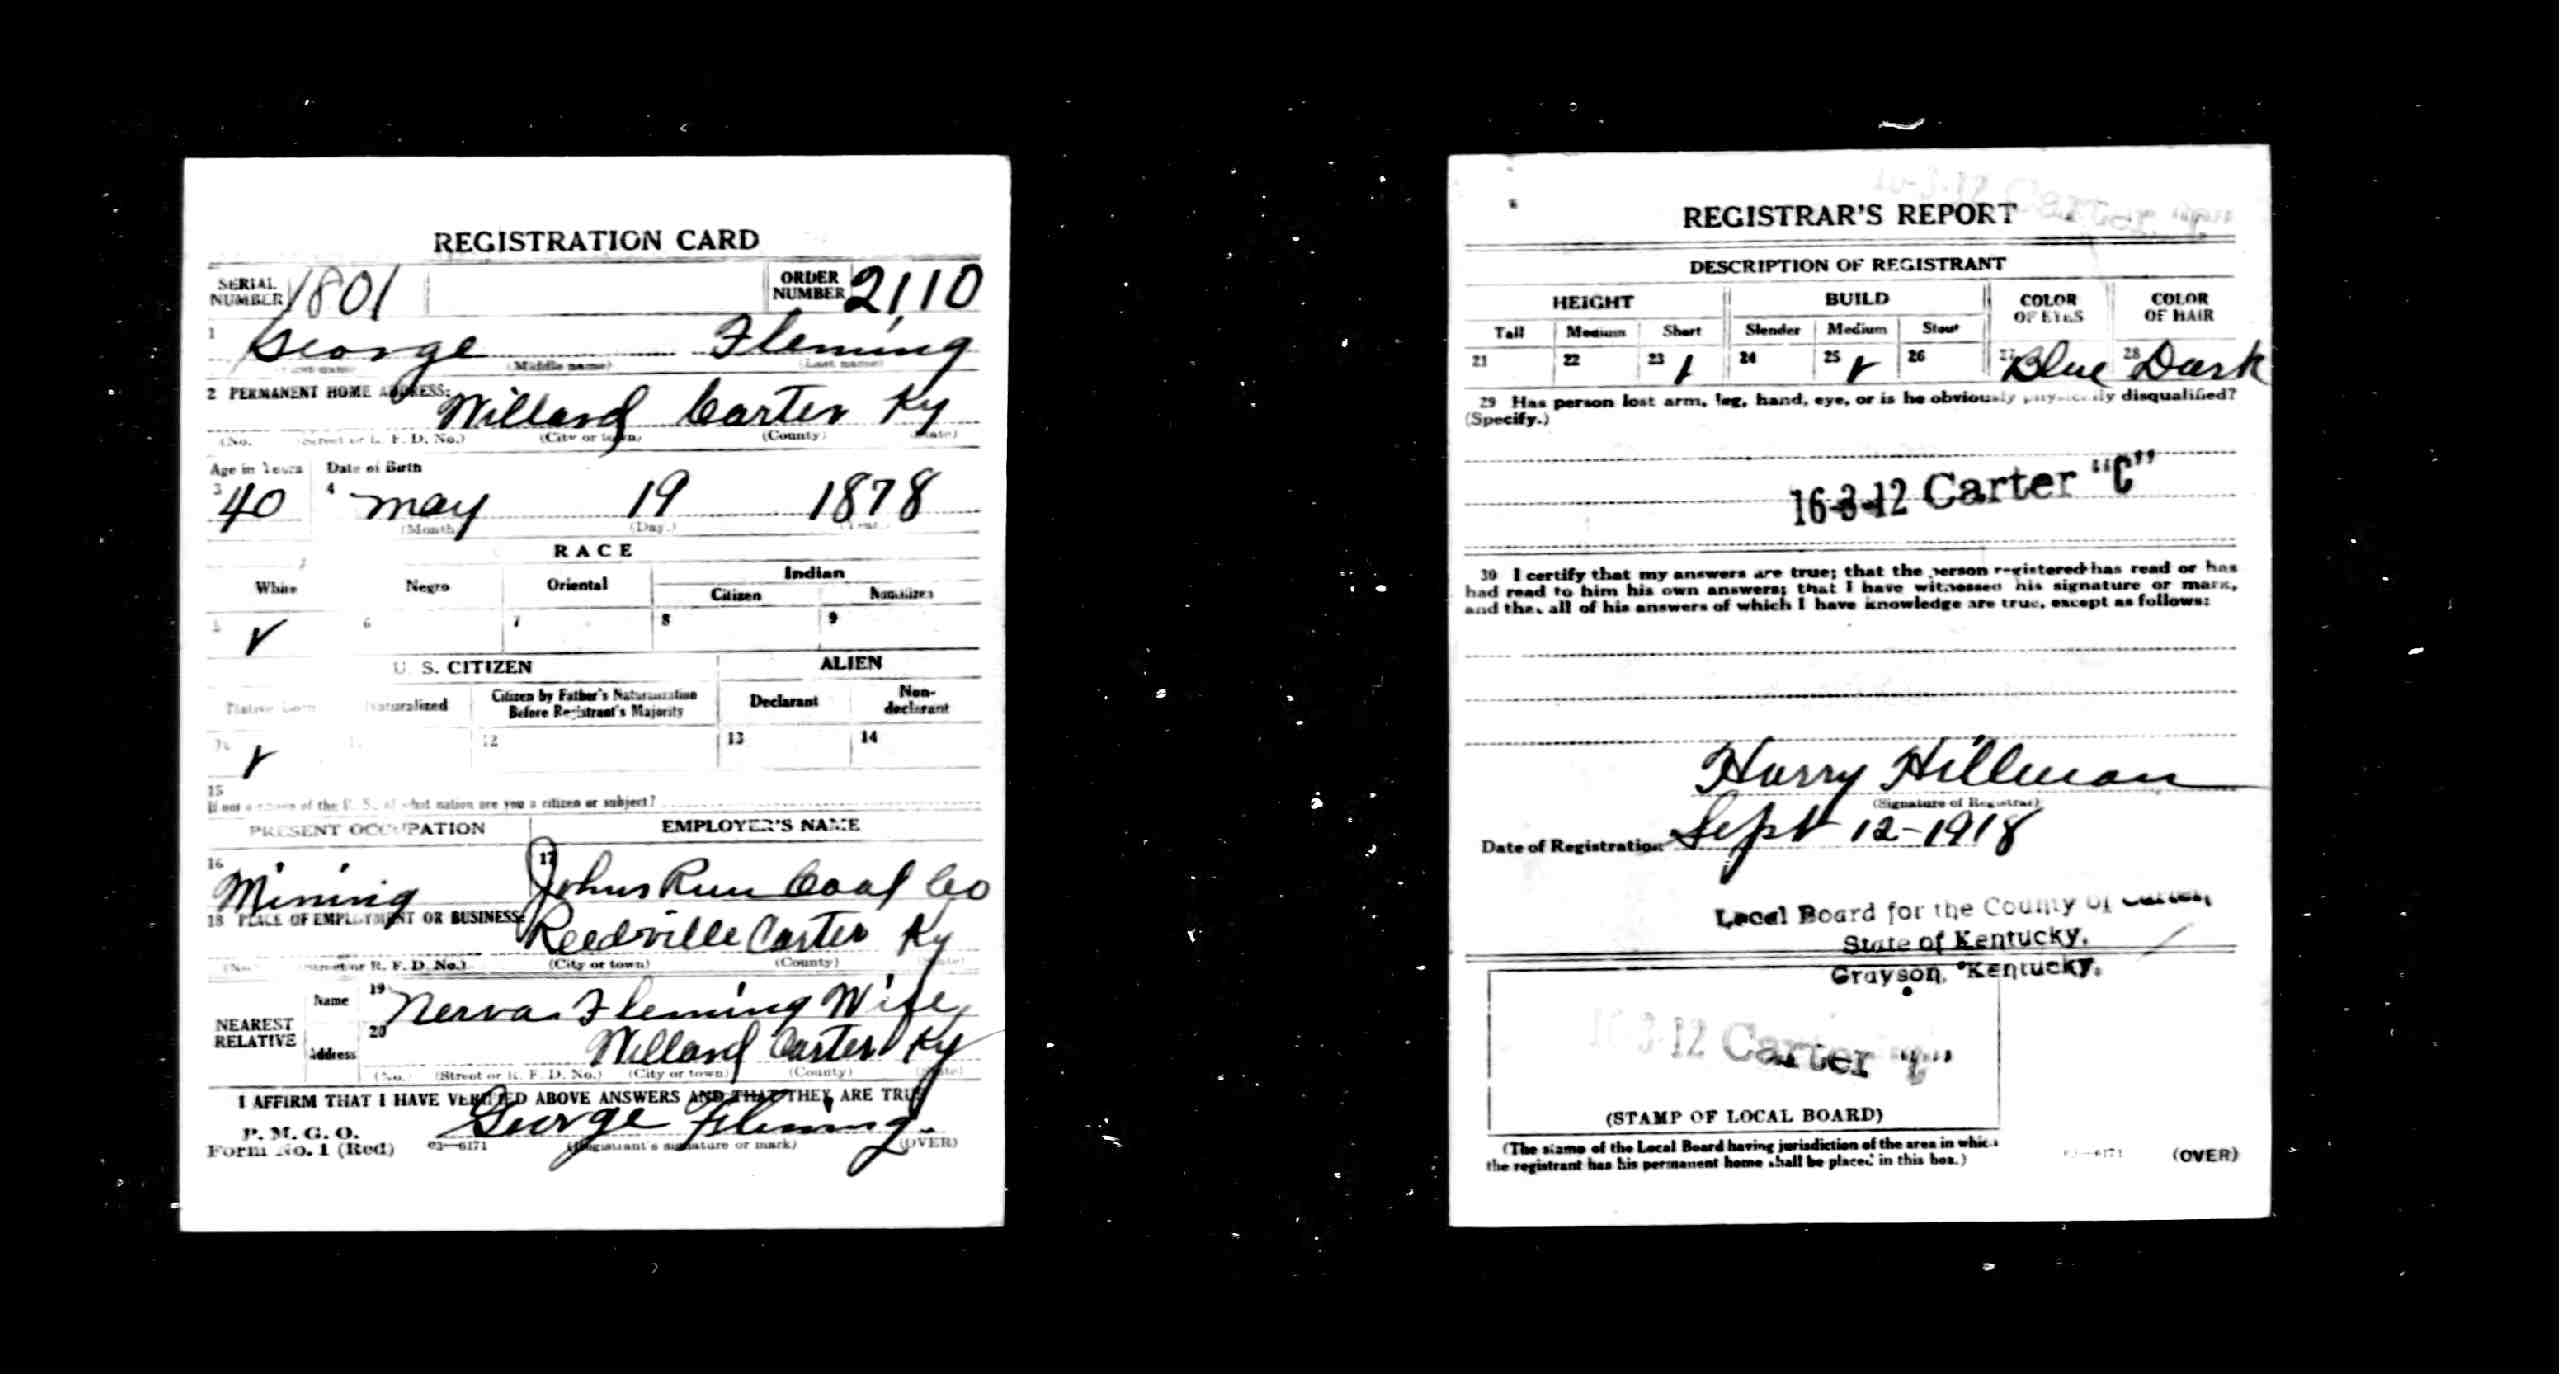 REGISTRATION CARD
SERIAL NUMBER 1801 ORDER NUMBER 2110
1 George Fleming
(Middle name) (Last name)
2 PERMANENT HOME ADDRESS: Willard Carter Ky
(No. (Street or R. F. D. No.) (City or town) (County) (State)
Age in Years Date of Birth
3 40 4 May 19 1878
(Month) (Day.) (Year.)
RACE
White Negro Oriental Indian
Citizen Noncitizen
5 ✓ 6 7 8 9
U. S. CITIZEN ALIEN
Native Born Naturalized Citizen by Father's Naturalization Before Registrant's Majority Declarant Non-declarant
10 ✓ 12 13 14
15
If not a citizen of the U. S., of what nation are you a citizen or subject?
PRESENT OCCUPATION EMPLOYER'S NAME
16 Mining 17 Johns Run Coal Co
18 PLACE OF EMPLOYMENT OR BUSINESS: Reedville Carter Ky
(No. (Street or R. F. D. No.) (City or town) (County) (State)
NEAREST RELATIVE Name 19 Nerva Fleming Wife
Address 20 Willard Carter Ky
(No. (Street or R. F. D. No.) (City or town) (County) (State)
I AFFIRM THAT I HAVE VERIFIED ABOVE ANSWERS AND THAT THEY ARE TRUE
P. M. G. O.
Form No. 1 (Red) 03—6171 George Fleming. (Registrant's signature or mark) (OVER)
16-3-12 Carter "C"
REGISTRAR'S REPORT
DESCRIPTION OF REGISTRANT
HEIGHT BUILD COLOR OF EYES COLOR OF HAIR
Tall Medium Short Slender Medium Stout
21 22 23 ✓ 24 25 ✓ 26 27 Blue 28 Dark
29 Has person lost arm, leg, hand, eye, or is he obviously physically disqualified?
(Specify.)
16-3-12 Carter "C"
30 I certify that my answers are true; that the person registered has read or has
had read to him his own answers; that I have witnessed his signature or mark,
and that all of his answers of which I have knowledge are true, except as follows:
Harry Hillman
(Signature of Registrar)
Date of Registration Sept 12-1918
Local Board for the County of Carter,
State of Kentucky,
Grayson, Kentucky.
16-3-12 Carter "C"
(STAMP OF LOCAL BOARD)
(The stamp of the Local Board having jurisdiction of the area in which
the registrant has his permanent home shall be placed in this box.)
03—6171 (OVER)